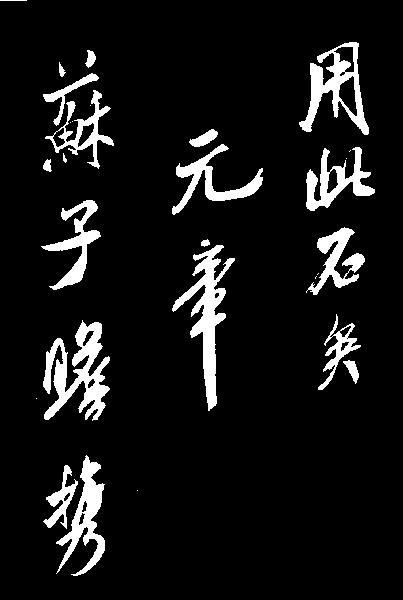 用此石矣
元章
蘇子瞻携